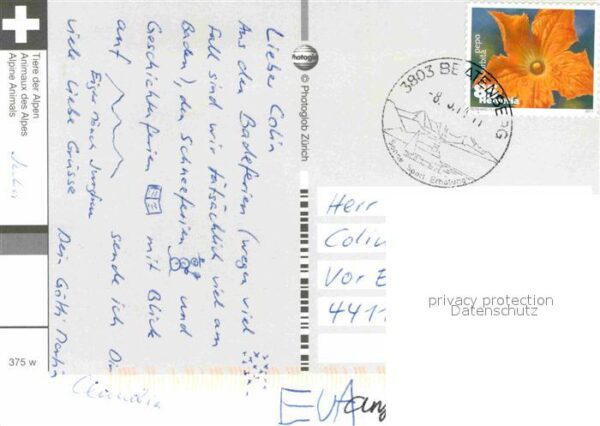 Tiere der Alpen
Animaux des Alpes
Alpine Animals
375 w
Lieber Colin
Aus den Badeferien (wegen viel
Fall sind wir tatsächlich viel am
Baden), den Schneeferien und
Geschichtferien mit Blick
auf sende ich Dir
Eiger Mönch Jungfrau
viele liebe Grüsse
Dein Götti Martin
Claudia
EVA
Photoglob
© Photoglob Zürich
3803 BEATENBERG
Sonne Sport Erholung
pepo
Helvetia
Herr
Colin
Vor E
4411
privacy protection
Datenschutz